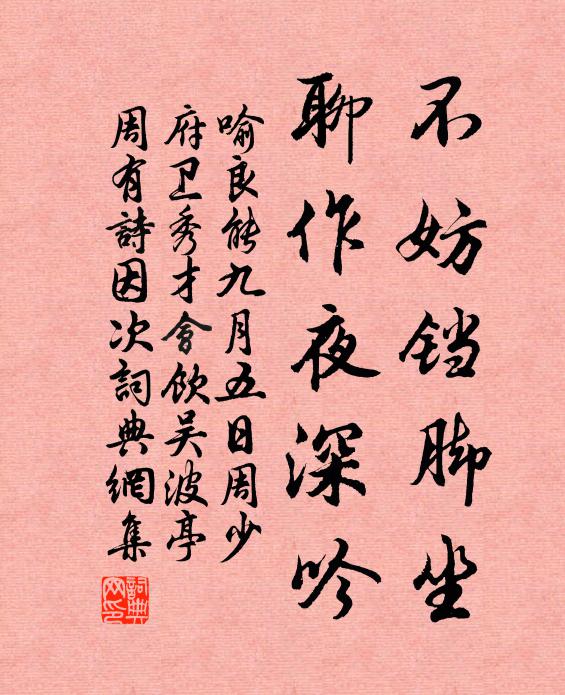 不妨铛脚坐
聊作夜深吟
喻良能九月五日周少
府卫秀才会饮吴波亭
周有詩因次詞典網集
詞典网印